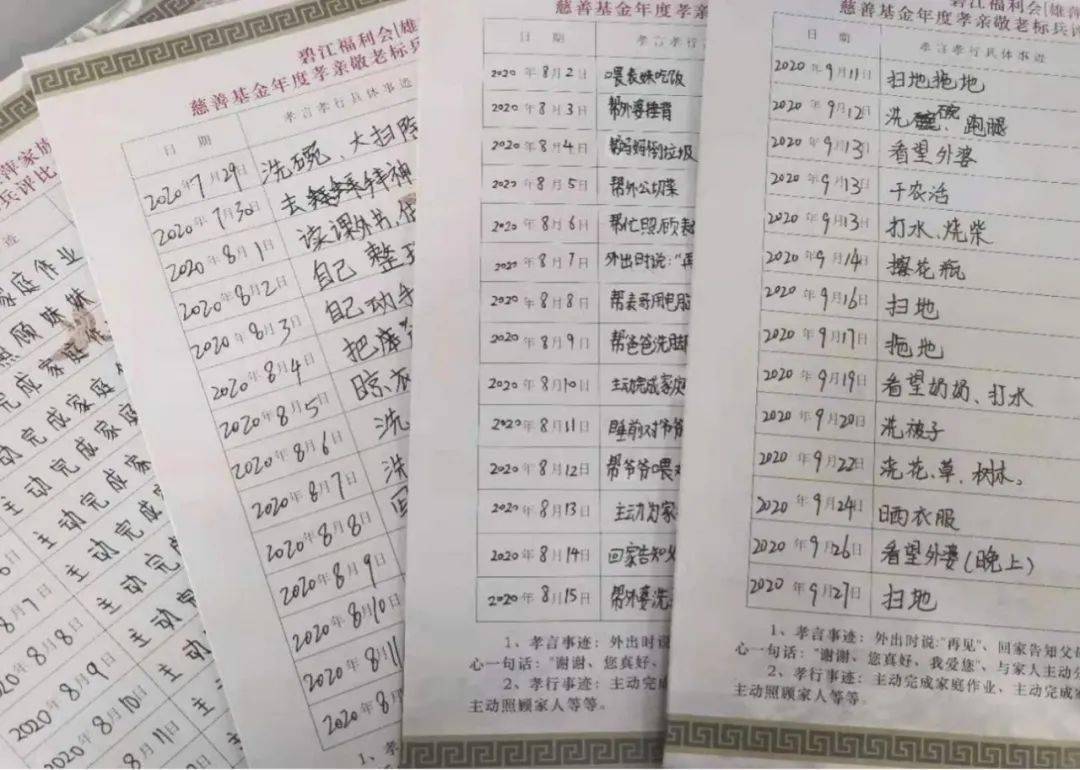 萍家慈
兵评比
造
家庭作业
照顾妹妹
完成家庭作
动完成家庭作
动完成家庭
主动完成家庭
主动完成家庭
主动完成家
主动完成
主动完成
主动完
8月7日 主动
8月8日 主动
2020年8月9日 主动
2020年8月10日 主
8月11日 主
碧江福利会[雄萍
慈善基金年度孝亲敬老标兵评
日 期 孝言孝行具体事迹
2020年7月29日 洗碗、大扫除
2020年7月30日 去
2020年8月1日 读课外书,
2020年8月2日 自己整
2020年8月3日 自己动手
2020年8月4日 把
2020年8月5日 晾衣
2020年8月6日 洗
2020年8月7日 洗
2020年8月8日 回
2020年8月9日
2020年8月10日
2020年8月11
2020年8月
1、
心一
2
主
慈善基金年度孝亲
日 期 孝言孝行
2020年8月2日 喂表妹吃饭
2020年8月3日 帮外婆捶背
2020年8月4日 帮妈妈倒垃圾
2020年8月5日 帮外公切菜
2020年8月6日 帮忙照顾
2020年8月7日 外出时说:“再
2020年8月8日 帮表哥用电脑
2020年8月9日 帮爸爸洗脚
2020年8月10日 主动完成家庭
2020年8月11日 睡前对爷爷
2020年8月12日 帮爷爷喂
2020年8月13日 主动为家
2020年8月14日 回家告知父
2020年8月15日 帮外婆洗
1、孝言事迹:外出时说
心一句话:“谢谢、您真好、
2、孝行事迹:主动完成
主动照顾家人等等。
碧江福利会[雄萍
慈善基金年度孝亲敬老标兵评
日 期 孝言孝行具体事迹
2020年9月11日 扫地拖地
2020年9月12日 洗碗、跑腿
2020年9月13日 看望外婆
2020年9月13日 干农活
2020年9月13日 打水、烧柴
2020年9月14日 擦花瓶
2020年9月16日 扫地
2020年9月17日 拖地
2020年9月19日 看望奶奶、打水
2020年9月20日 洗被子
2020年9月22日 浇花、草、树木。
2020年9月24日 晒衣服
2020年9月26日 看望外婆(晚上)
2020年9月27日 扫地
1、孝言事迹:外出时说:“再见”、回家告知父母
心一句话:“谢谢、您真好、我爱您”、与家人主动分
2、孝行事迹:主动完成家庭作业、主动完成家
主动照顾家人等等。